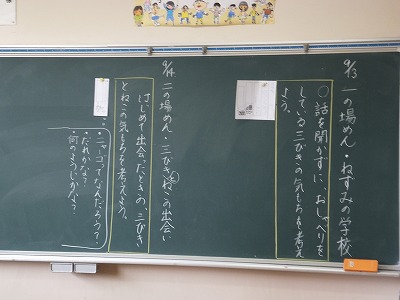 9/13 一の場めん・ねずみの学校
○話を聞かずに、おしゃべりを
している三びきの気もちを考え
よう。
9/14 二の場めん・三びきとねこの出会い
はじめて出会ったときの、三びき
とねこの気もちを考えよう。
・ニャーゴってなんだろう？
・だれかな？
・何のようじかな？